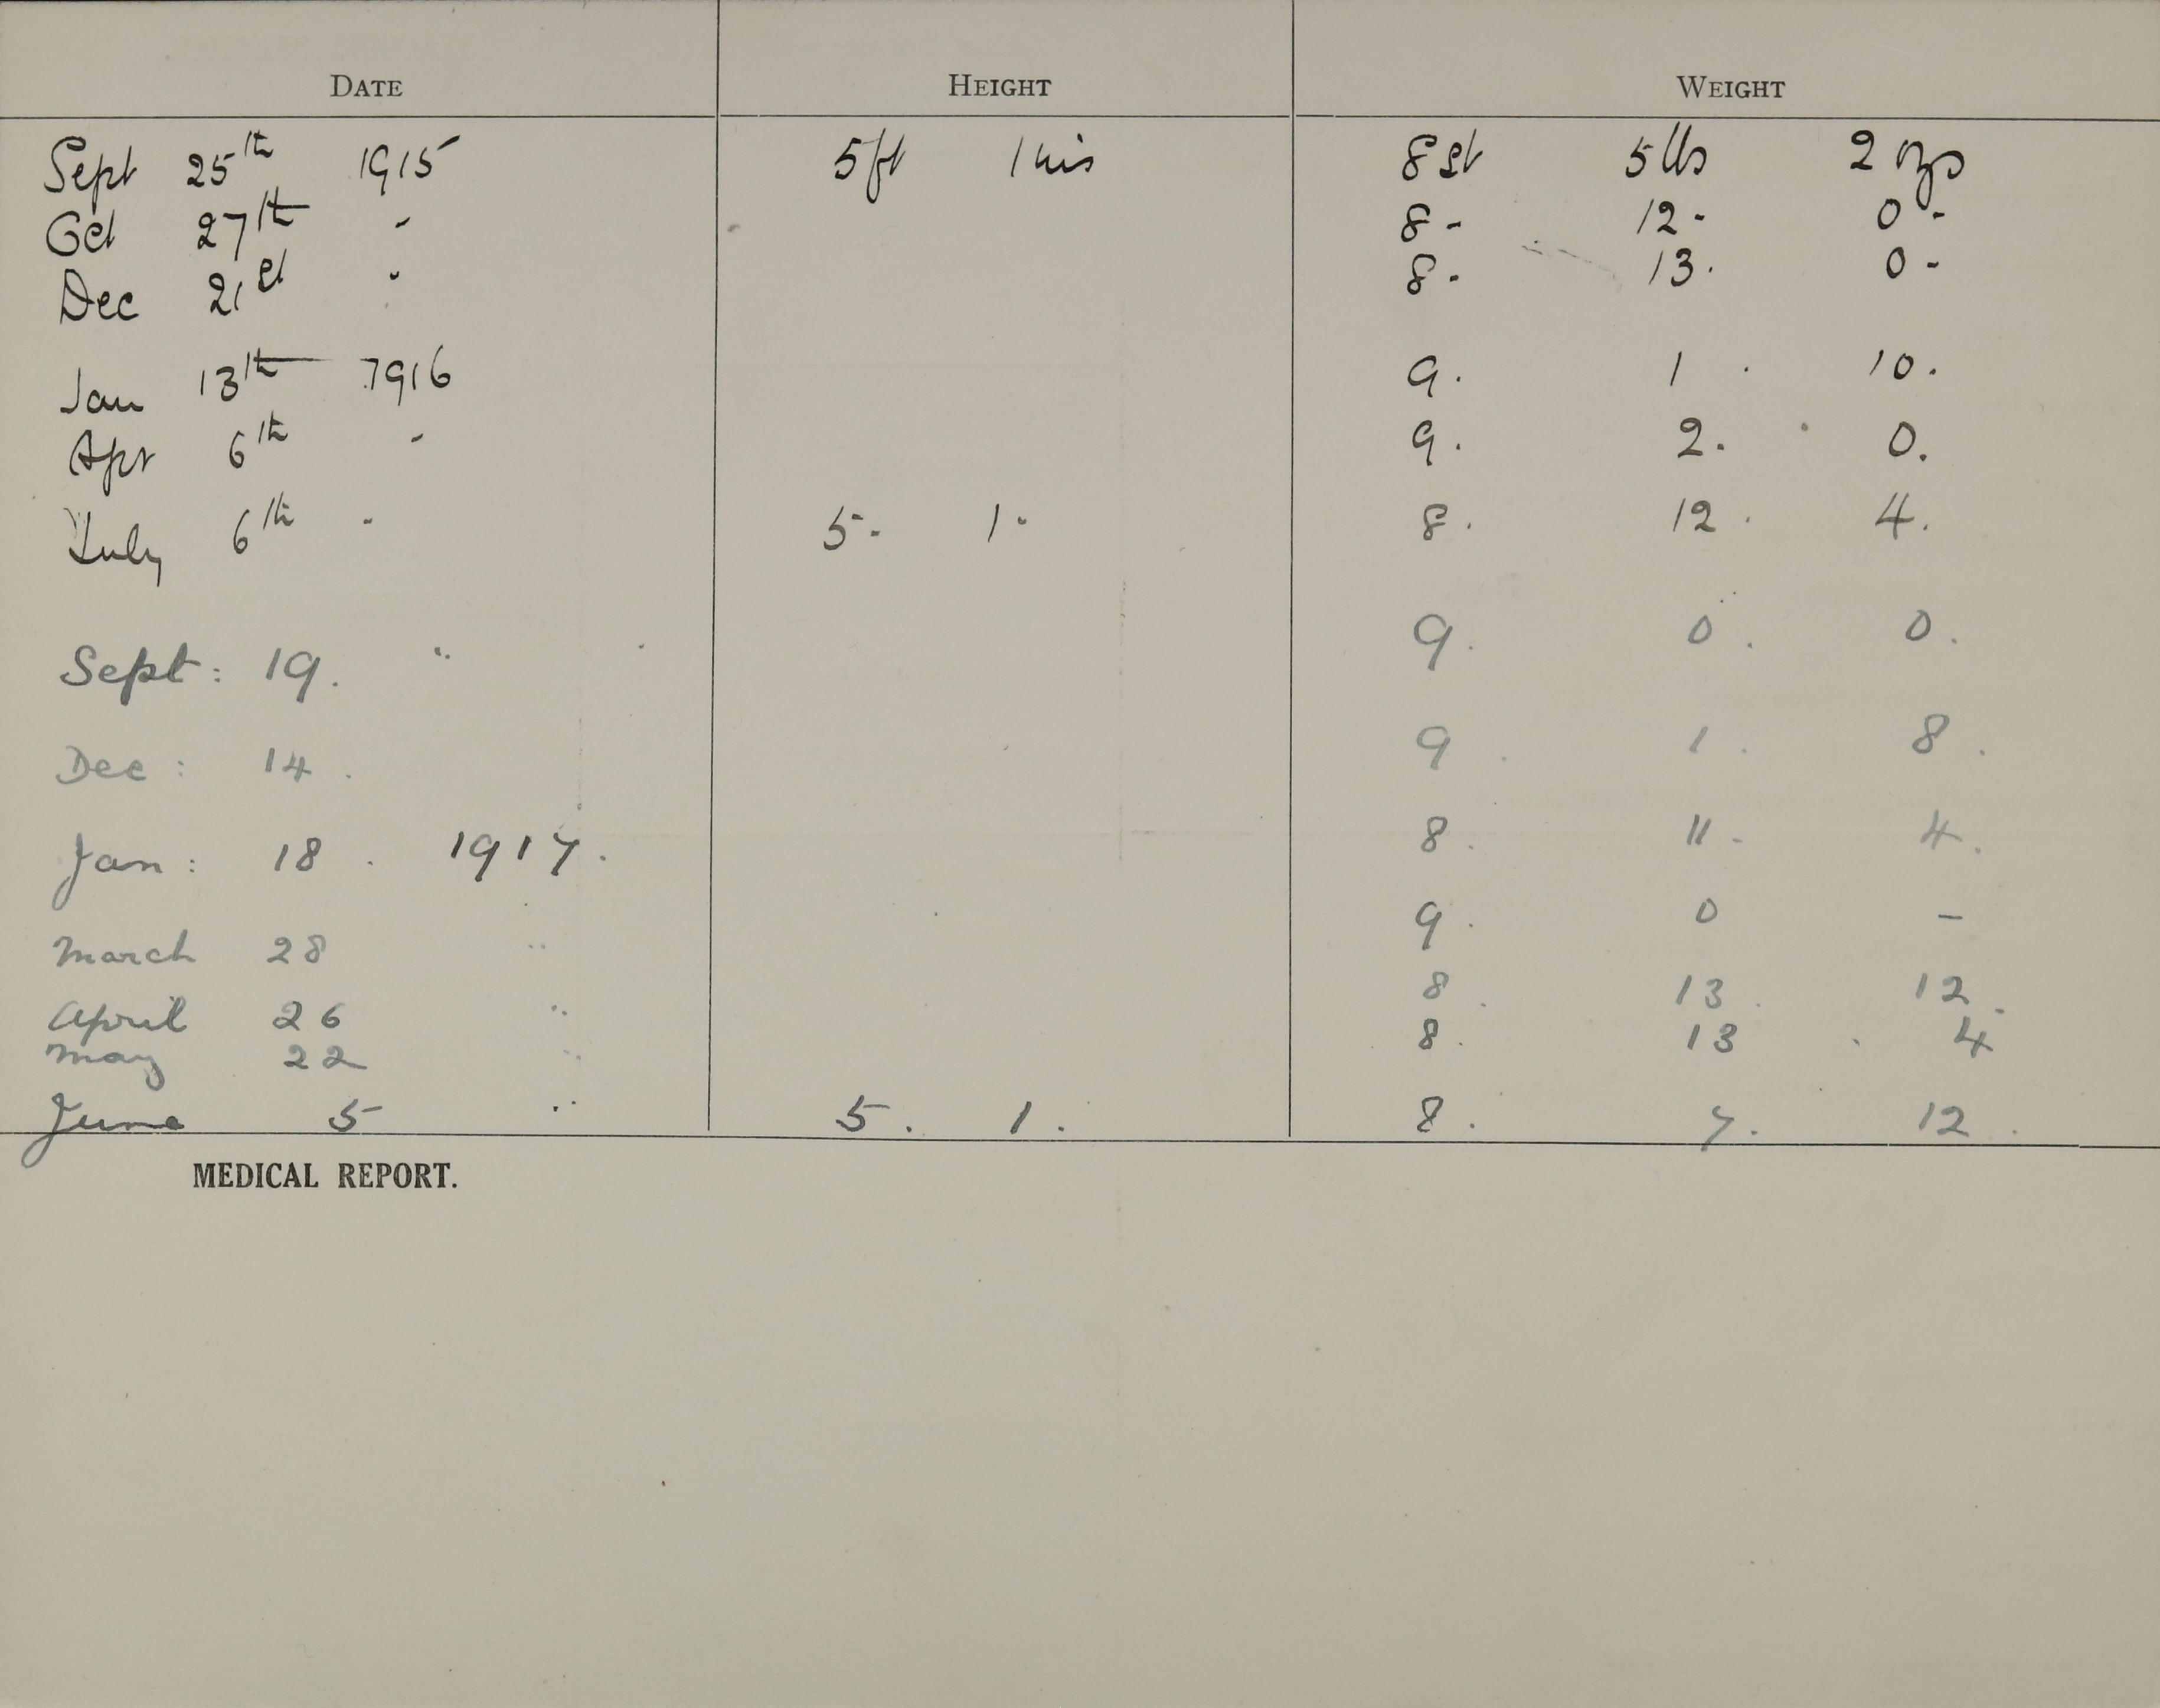 DATE HEIGHT WEIGHT
Sept 25th 1915 5ft 1 ins 8 st 5 lbs 2 ozs
Oct 27th " 8 - 12 - 0 -
Dec 21st " 8 - 13 . 0 -
Jan 13th 1916 9 . 1 . 10 .
Apr 6th " 9 . 2 . 0 .
July 6th " 5 - 1 - 8 . 12 . 4 .
Sept : 19 . " 9 . 0 . 0 .
Dec : 14 . 9 . 1 . 8 .
Jan : 18 . 1917 . 8 . 11 - 4 .
March 28 " 9 . 0 –
April 26 " 8 . 13 . 12 .
May 22 " 8 . 13 . 4
June 5 " 5 . 1 . 8 . 7 . 12 .
MEDICAL REPORT.